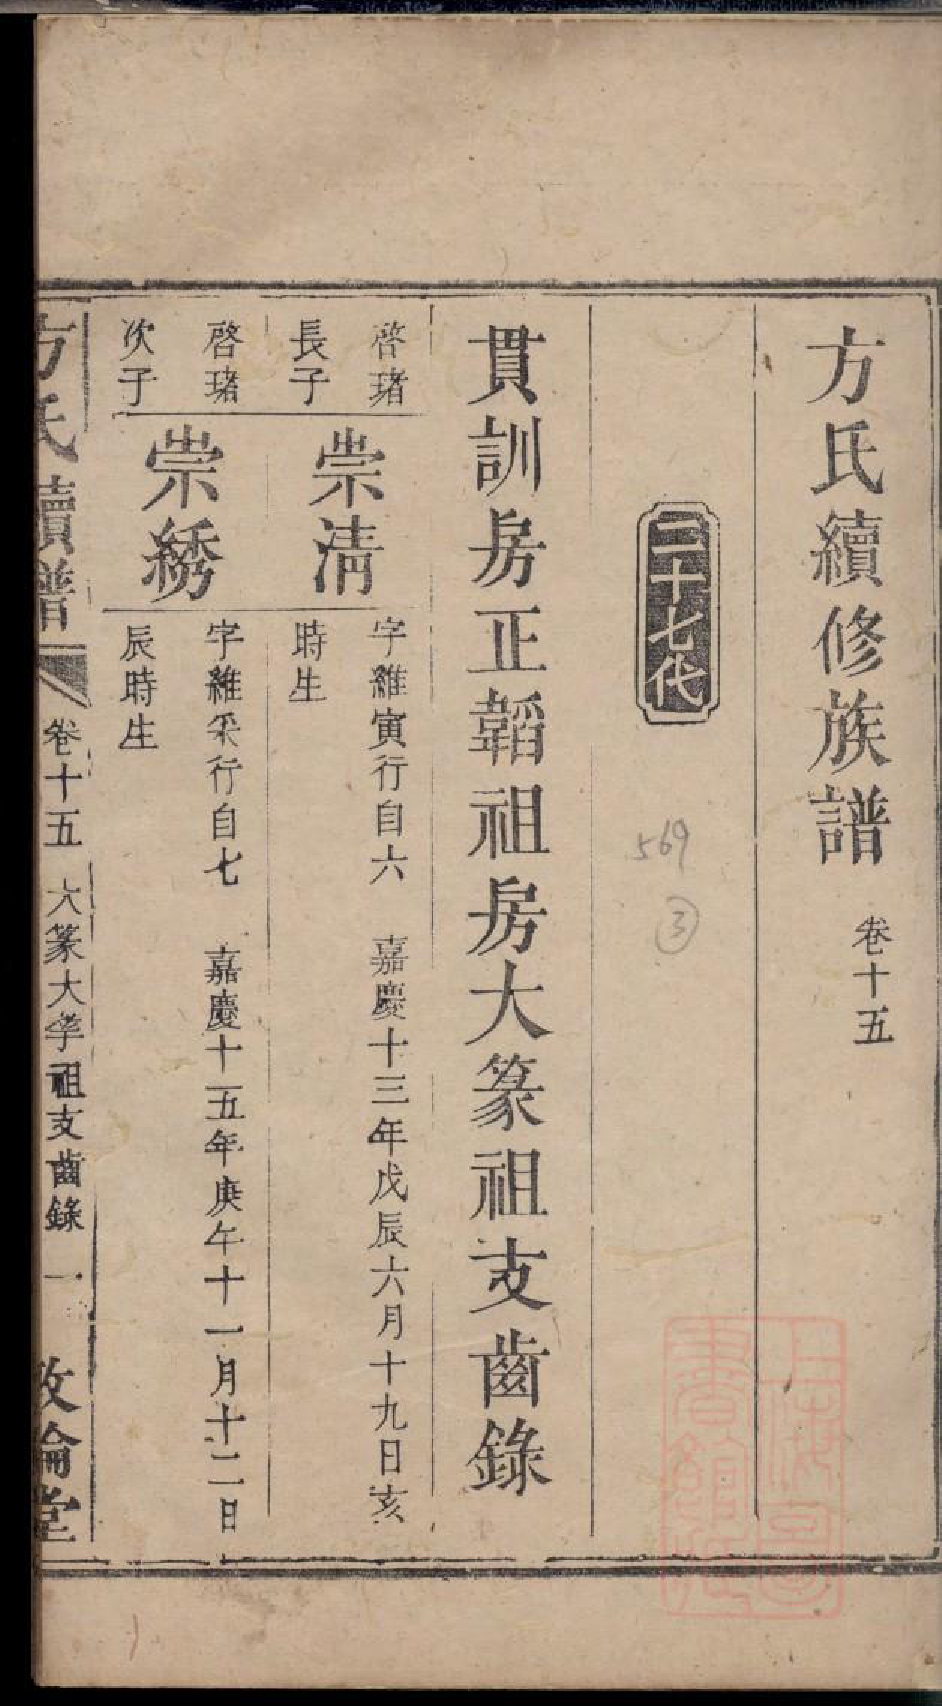 方氏續修族譜 卷十五
二十七代
569
③
貫訓房正韜祖房大篆祖支齒錄
啓瑎
長子
崇淸
字維寅行自六 嘉慶十三年戊辰六月十九日亥
時生
啓瑎
次子
崇綉
字維采行自七 嘉慶十五年庚午十一月十二日
辰時生
方氏續譜 卷十五 大篆大學祖支齒錄 一 敦倫堂